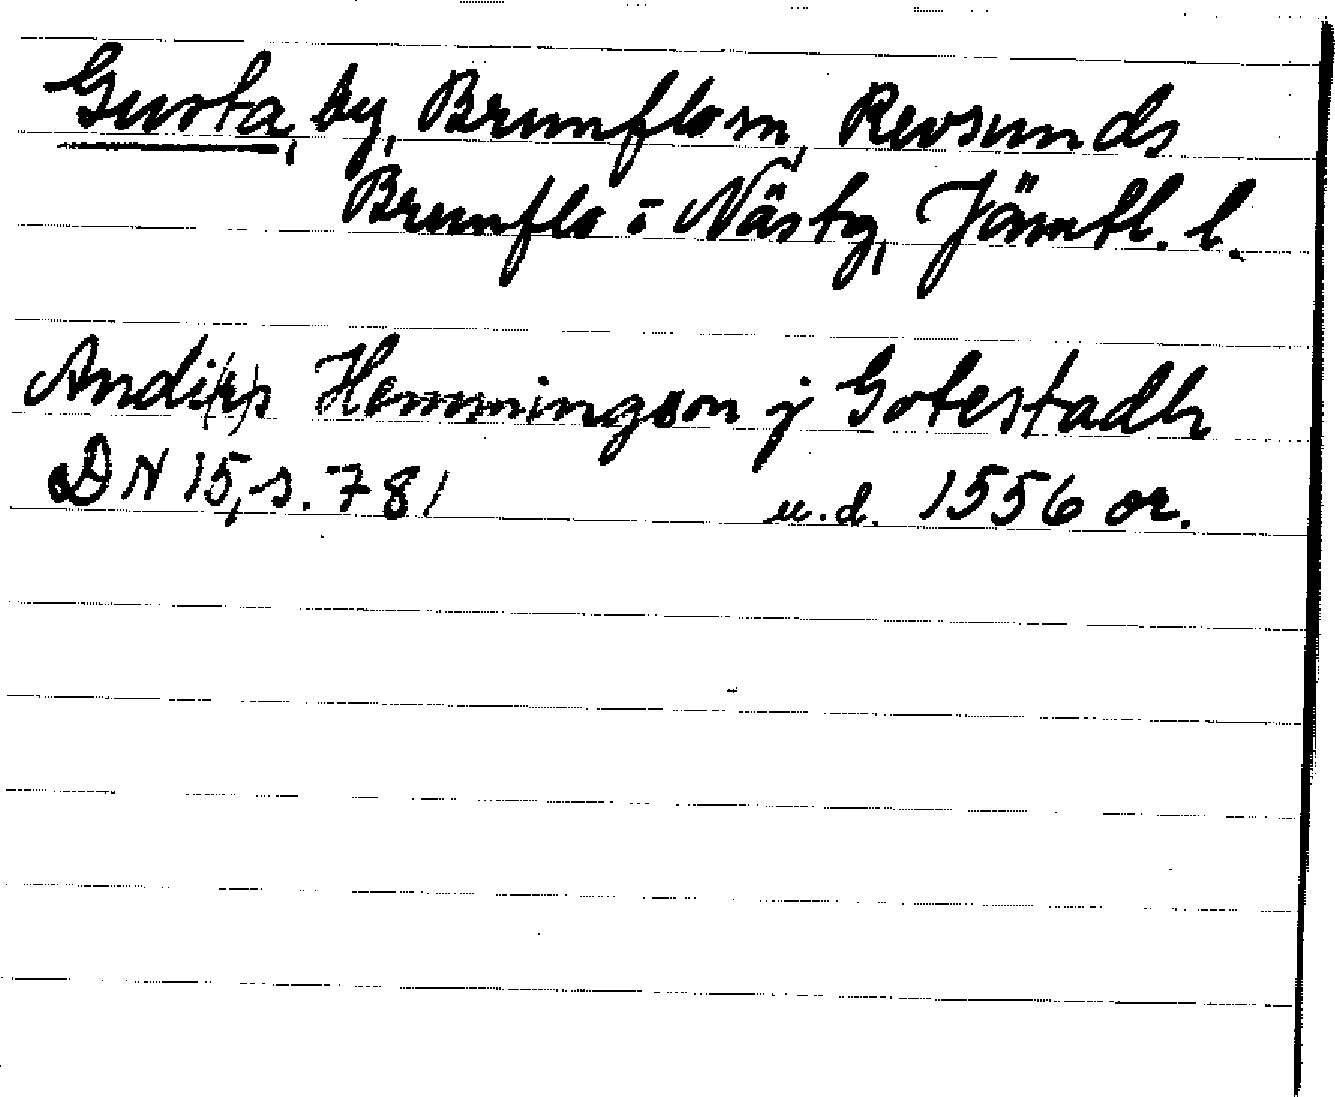 Gusta, by, Brunflo sn, Revsunds
Brunflo i Näsby, Jämtl. l.
Andi(r)s Hemmingson j Gotestadh
DN 15, s. 781 u.d. 1556 or.